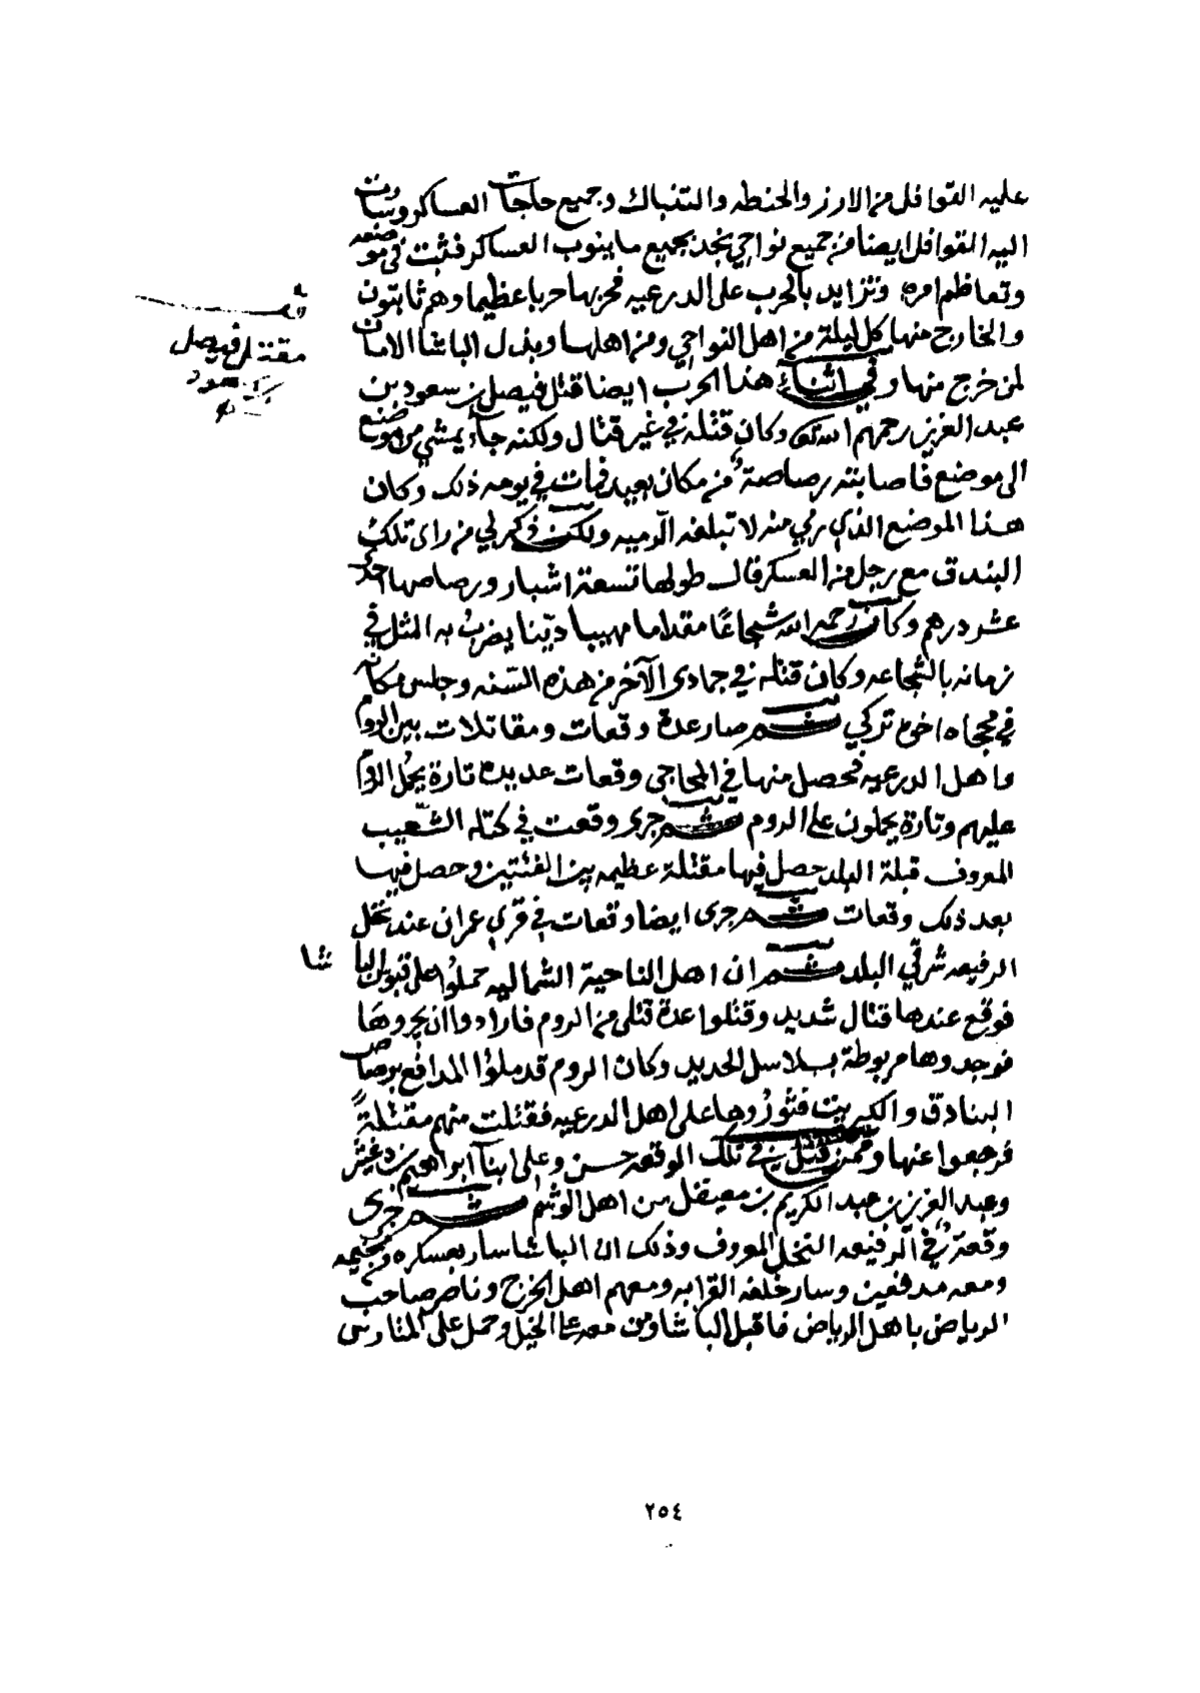 عليه القوافل من الارز والحنطه والتنباك وجميع حاجات العساكر وسارت
اليه القوافل ايضا من جميع نواحي نجد بجميع ما ينوب العساكر فثبت في موضعه
وتعاظم امره وتزايد بالحرب على الدرعيه فحربها حربا عظيما وهم ثابتون
والخارج منها كل ليلة من اهل النواحي ومن اهلها وبذل الباشا الامان
لمن خرج منها وفي اثناء هذا الحرب ايضا قتل فيصل بن سعود بن
عبد العزيز رحمهم الله تعالى وكان قتله في غير قتال ولكنه جاء يمشي من موضع
الى موضع فاصابته رصاصة من مكان بعيد فمات في يومه ذلك وكان
هذا الموضع الذي رمي منه لا تبلغه الرميه ولكن ذكر لي من راى تلك
البندق مع رجل من العسكر قال طولها تسعة اشبار ورصاصها احد
عشر درهم وكان رحمه الله شجاعًا مقداما مهيبا ديّنا يضرب به المثل في
زمانه بالشجاعه وكان قتله في جمادى الآخر من هذه السّنه وجلس مكانه
في محجاه اخوه تركي ثم صار عدة وقعات ومقاتلات بين الروم
واهل الدرعيه فحصل منها في المحاجي وقعات عديده تارة يحمل الروم
عليهم وتارة يحملون على الروم ثم جرى وقعت في كتله الشّعيب
المعروف قبلة البلد حصل فيها مقتلة عظيمه بين الفئتين وحصل فيها
بعد ذلك وقعات ثم جرى ايضا وقعات في قري عمران عند نخل
الرفيعه شرقي البلد ثم ان اهل الناحية الشماليه حملوا على قبوس البا شا
فوقع عندها قتال شديد وقتلوا عدة قتلى من الروم فارادوا ان يجروها
فوجدوها مربوطة بسلاسل الحديد وكان الروم قد ملؤا المدافع برصاص
البنادق والكبريت فثوروها على اهل الدرعيه فقتلت منهم مقتلةً
فرجعوا عنها وممن قتل في تلك الوقعه حسن وعلي ابنا ابراهيم بن دغيثر
وعبد العزيز بن عبد الكريم بن معيقل من اهل الوشم ثم جرى
وقعة في الرفيعه النخل المعروف وذلك ان الباشا سار بعسكره من مخيمه
ومعه مدفعين وسار خلفه القرابه ومعهم اهل الخرج وناصر صاحب
الرياض باهل الرياض فاقبل الباشا ومن معه على الخيل وحمل على المتارس
قف
مقتل فيصل
بن سعود
٢٥٤